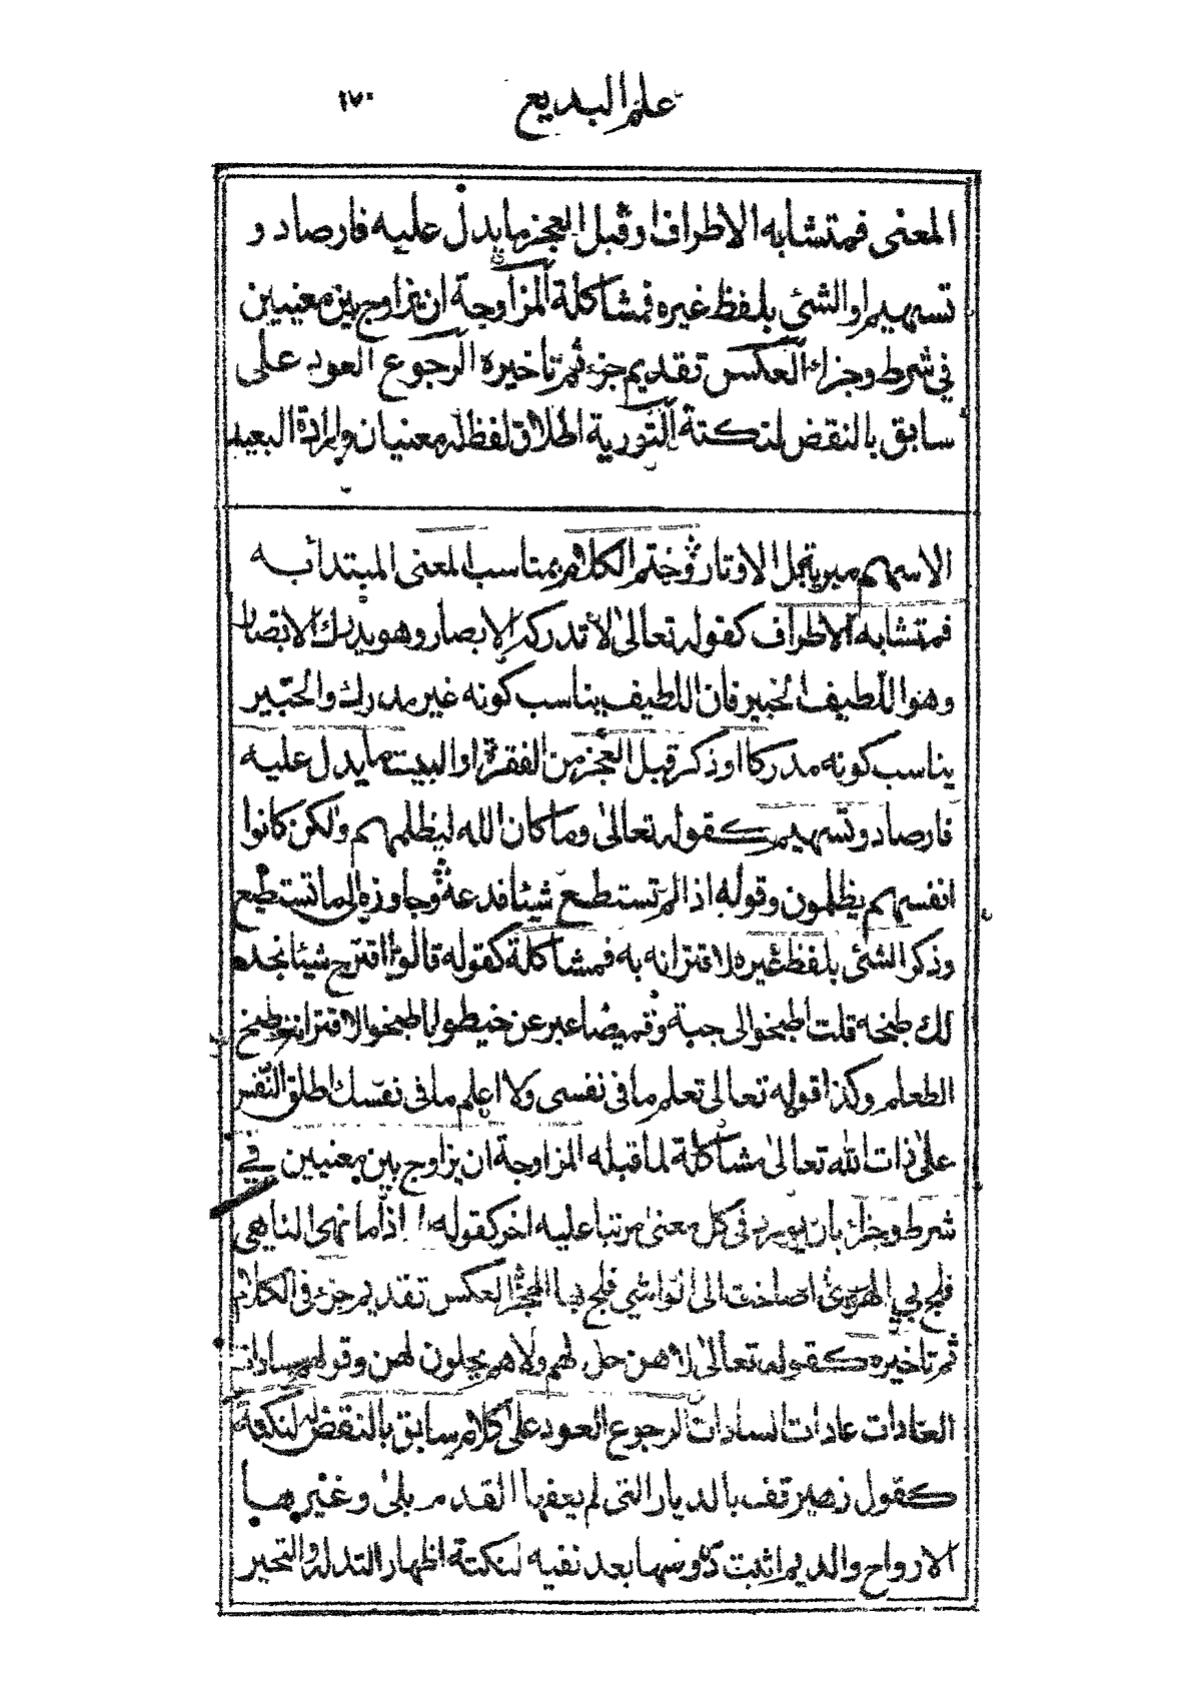 علم البديع ١٧٠
المعنى فمتشابه الاطراف او قبل العجز ما يدل عليه فارصاد و
تسهيم او الشئ بلفظ غيره فمشاكلة المزاوجة ان يزاوج بين معنيين
فى شرط وجزاء العكس تقديم جزء ثم تاخيره الرجوع العود على
سابق بالنقض لنكتة التورية اطلاق لفظ له معنيان وارادة البعيد
الاسهم مبرية بل الاوتار وختم الكلام بمناسب المعنى المبتدأ به
فمتشابه الاطراف كقوله تعالىٰ لا تدركه الابصار وهو يدرك الابصار
وهو اللطيف الخبير فان اللطيف يناسب كونه غير مدرك والخبير
يناسب كونه مدركا او ذكر قبل العجز من الفقرة او البيت ما يدل عليه
فارصاد وتسهيم كقوله تعالىٰ وما كان الله ليظلمهم ولكن كانوا
انفسهم يظلمون وقوله اذا لم تستطع شيئا فدعه وجاوزه الى ما تستطيع
وذكر الشئ بلفظ غيره لاقترانه به فمشاكلة كقوله قالوا اقترح شيئا نجد
لك طبخه قلت اطبخوا لى جبة وقميصا عبر عن خيطوا باطبخوا لاقترانه بطبخ
الطعام وكذا قوله تعالى تعلم ما فى نفسى ولا اعلم ما فى نفسك اطلق النفس
علىٰ ذات الله تعالىٰ مشاكلة لما قبله المزاوجة ان يزاوج بين معنيين في
شرط وجزاء بان يورد فى كل معنىٰ مرتبا عليه اخر كقوله اذا ما نهى الناهى
فلج بي الهوىٰ اصاخت الى الواشي فلج بها الهجر العكس تقديم جزء فى الكلام
ثم تاخيره كقوله تعالىٰ لا هن حل لهم ولا هم يحلون لهن وقوله سادات
العادات عادات السادات الرجوع العود على كلام سابق بالنقض له لنكتة
كقول زهير قف بالديار التى لم يعفها القدم بلىٰ وغير ها
الارواح والديم اثبت دروسها بعد نفيه لنكتة اظهار التدله والتحير